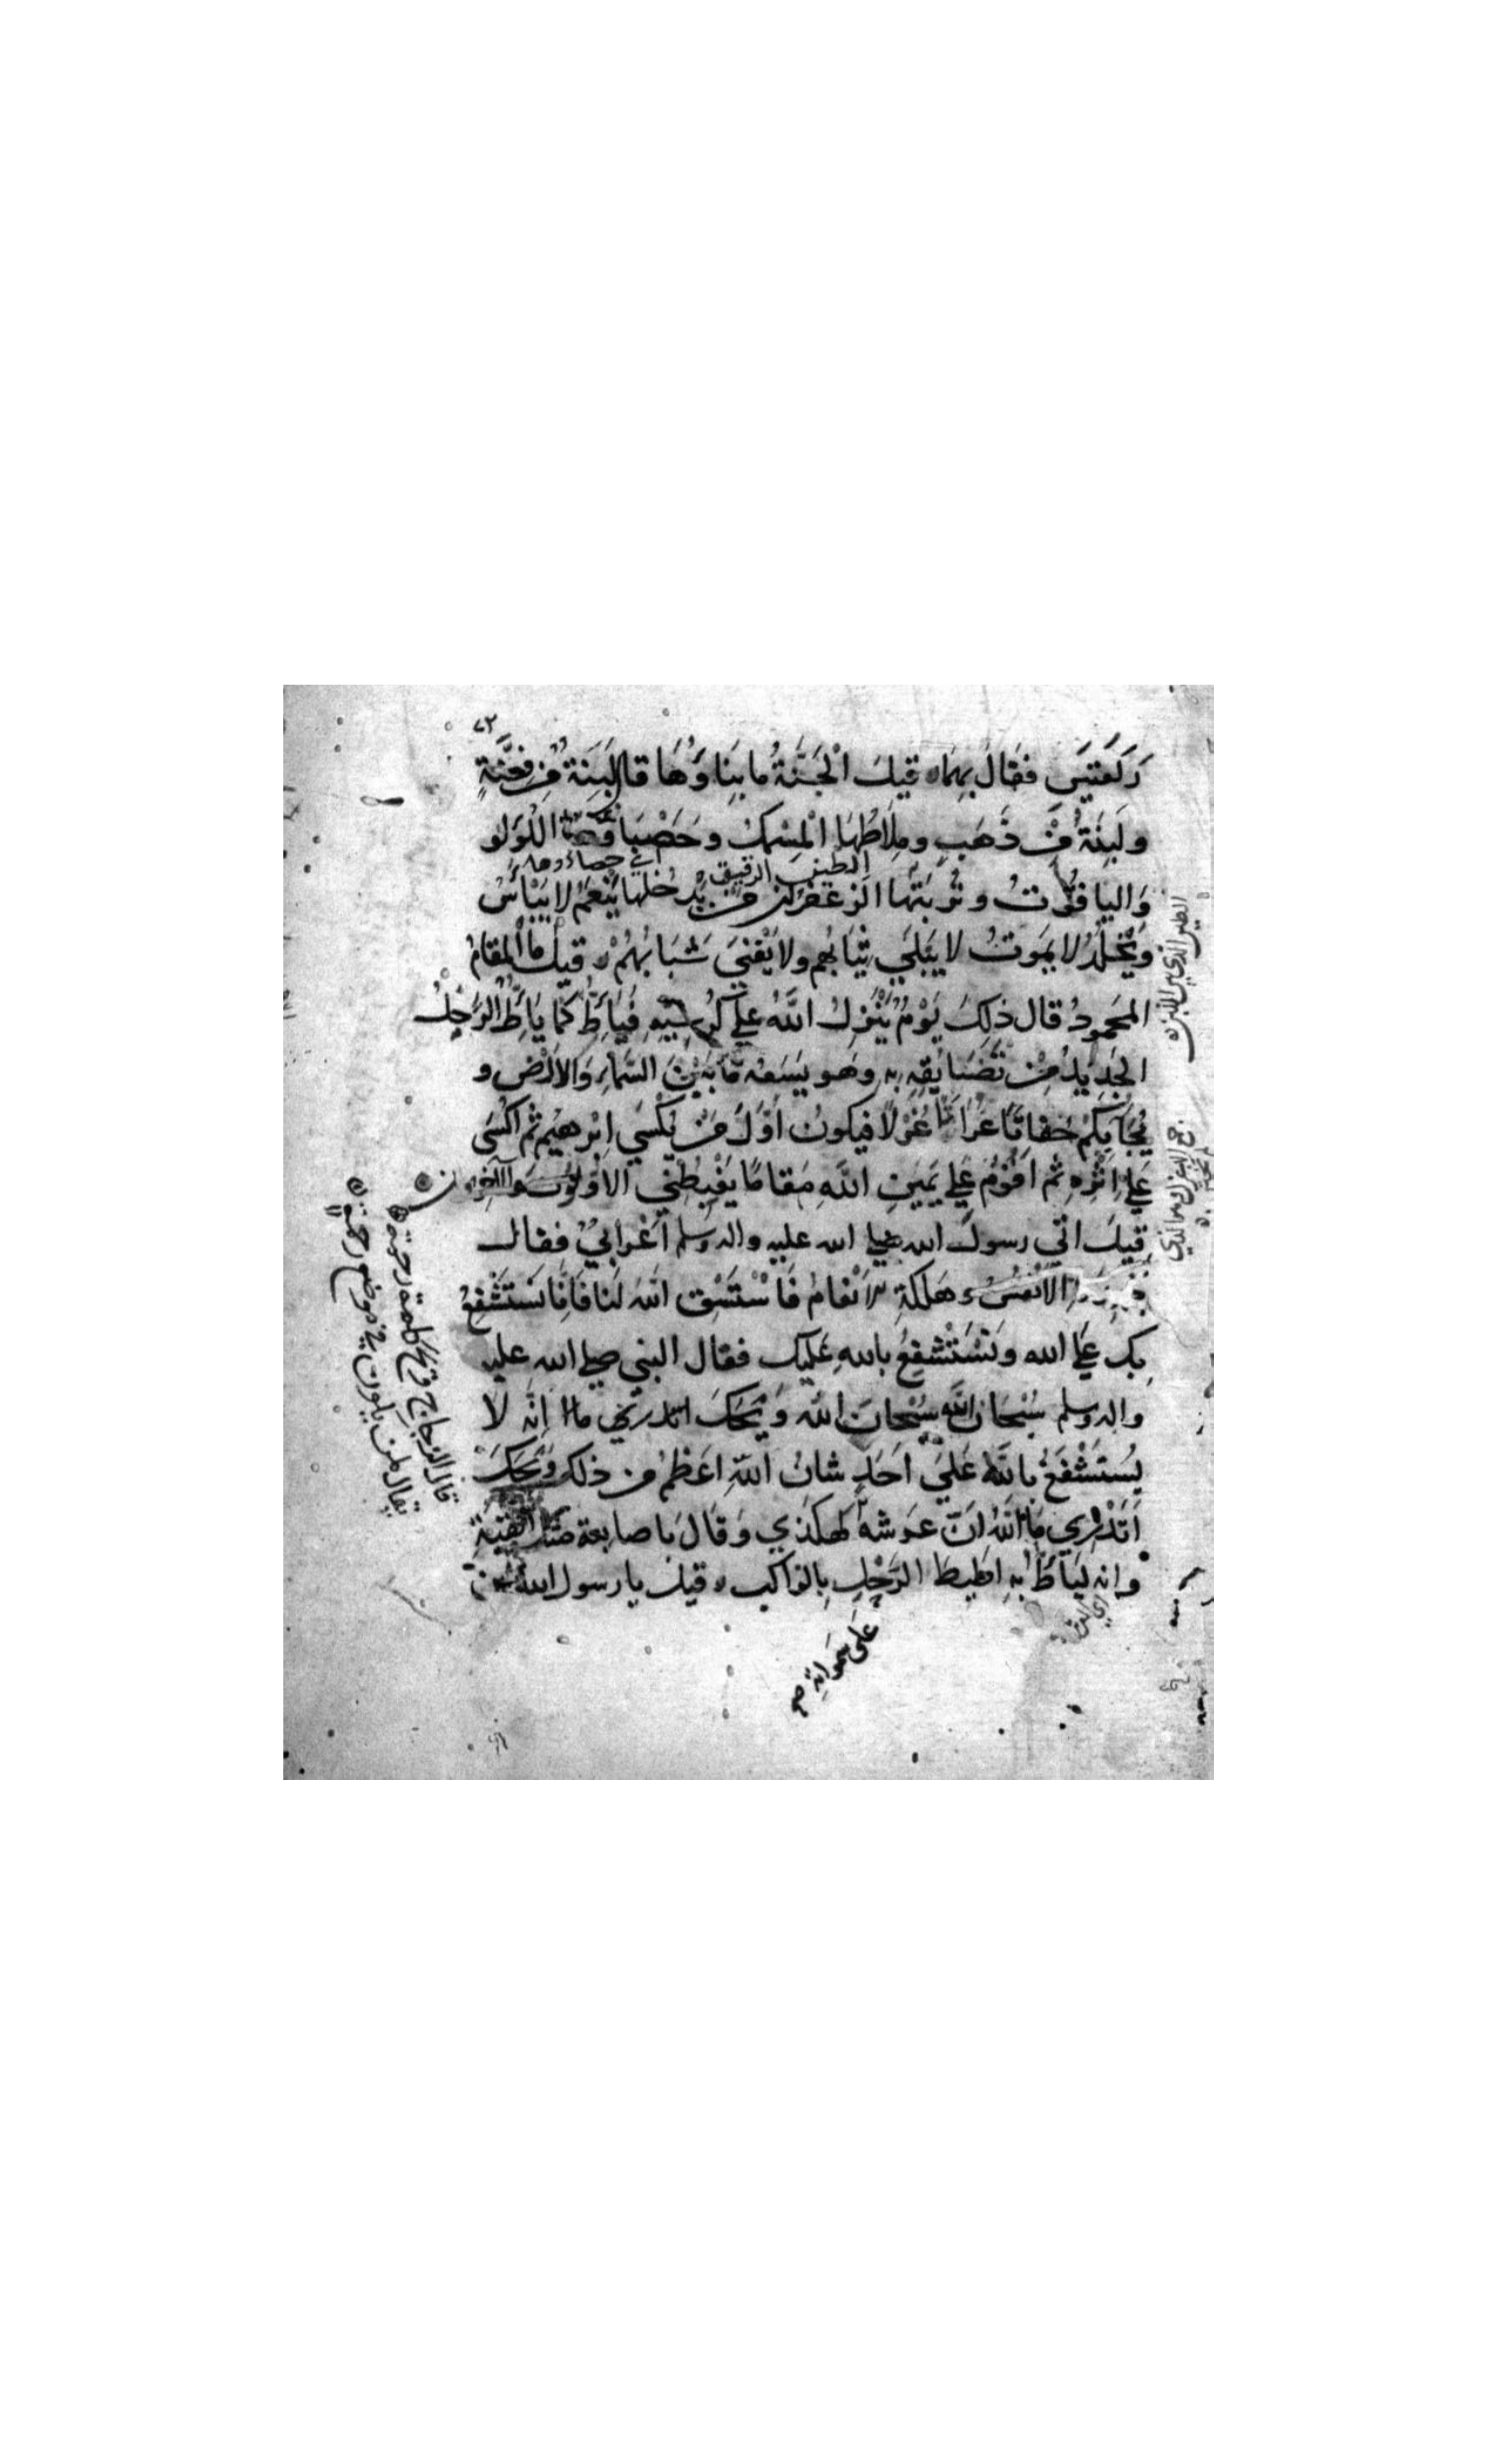 ٧٢
رَكعَتيَن فقالَ بِهِمَا ه قيلَ الْجَنَّةُ ما بِنَاؤُهَا قال لَبِنَةٌ مِن فِضَّةٍ
ولَبِنَةٌ مِنْ ذَهَبٍ ومِلَاطُهَا الْمِسْكُ وحَصْبَاؤُهَا اللُولو
الطين الرقيق
اي حصاؤها
وَاليَاقُوتُ وتُرْبَتُهَا الزعفران مَنْ يَدخُلْهَا يَنْعَمْ لا يَبْأَسُ
وَيُخَلَّدُ لا يَمُوتُ لا يَبْلَي ثِيَابُهم ولا يَفْنَي شَبَابُهُمْ ه قيل ما المقامُ
المَحمودُ قال ذلِكَ يَوْمُ يَنْزِلُ اللَّهُ علي كُرسِيِّهِ فَيَأَطُّ كمَا يَأَطُّ الرَحْلُ
الجَدِيدُ مِنْ تَضَايُقِهِ بِهِ وهو يَسَعُه مَا بَيْنَ السَّمَاءِ وَالاَرْضِ و
يُجَآءُ بِكمْ حُفاةً عُرَاةً غُرْلًا فيكونُ اوّلَ مَنْ يُكْسَي اِبْرهيم ثُم اُكْسَى
عَلي اِثْرِهِ ثم اَقُوْمُ علي يَمِينِ اللَّهِ مَقامًا يَغْبِطُنِي الاَوّلونَ والآخِرون ه
قِيلَ اتَي رسولَ الله صلي الله عليه واله وسلم اَعْرابِيٌّ فقالَ
الاَنفُسُ وهَلَكَتِ الاَنْعَامُ فَاسْتَسْقِ اللهَ لَنا فَاِنَّا نَسْتَشْفِعُ
بِك عَلَي الله ونَسْتَشْفِعُ باللهِ عَليكَ فقال النبي صلى الله عليه
واله وسلم سُبْحَانَ اللَّهِ سُبْحَانَ اللَّهِ وَيْحَكَ اتدري ما اِنّه لَا
يُستَشْفَعُ باللَّهِ عَلَي اَحَدٍ شانُ اللَّهِ اَعْظَمُ من ذلك وَيْحَكَ
اَتَدْرِي مَا اللَّهُ اِنَّ عَرشَهُ لَهكَذَي وَقَالَ بِاصابِعِهِ مثل القبّةِ
وانه لَيَأَطُّ بِهِ اَطِيطَ الرَحْلِ بِالراكب ه قيل يا رسول الله
على سمواته صح
الطين الذي بين اللبن ه
قال الزجاج ويح كلمة رحمة ه
يقال لمن يكون في موضع رحمة ه